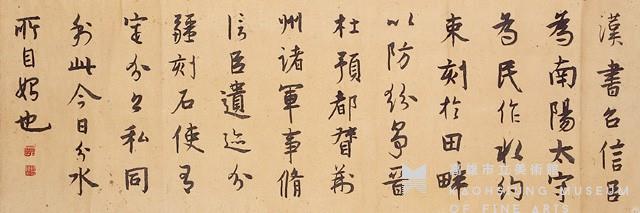 漢書召信臣
為南陽太守
為民作水約
束刻於田畔
以防紛爭晉
杜預都督荊
州諸軍事脩
信臣遺迹分
疆刻石使有
定分公私同
利此今日分水
所自始也
高雄市立美術館
KAOHSIUNG MUSEUM
OF FINE ARTS